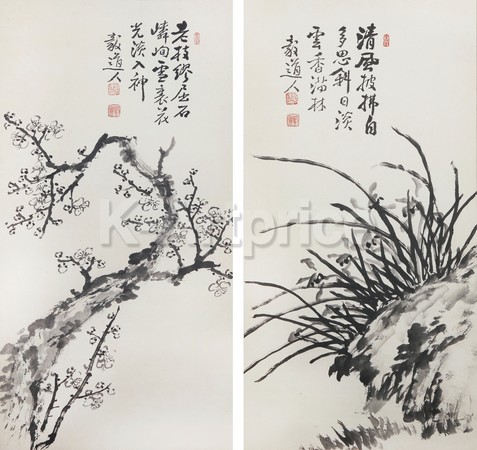 老枝繆屈石
嶙峋雪裏花
光淡入神
毅道人
清風披拂自
多思斜日淡
雲香滿林
毅道人
K-Artprice